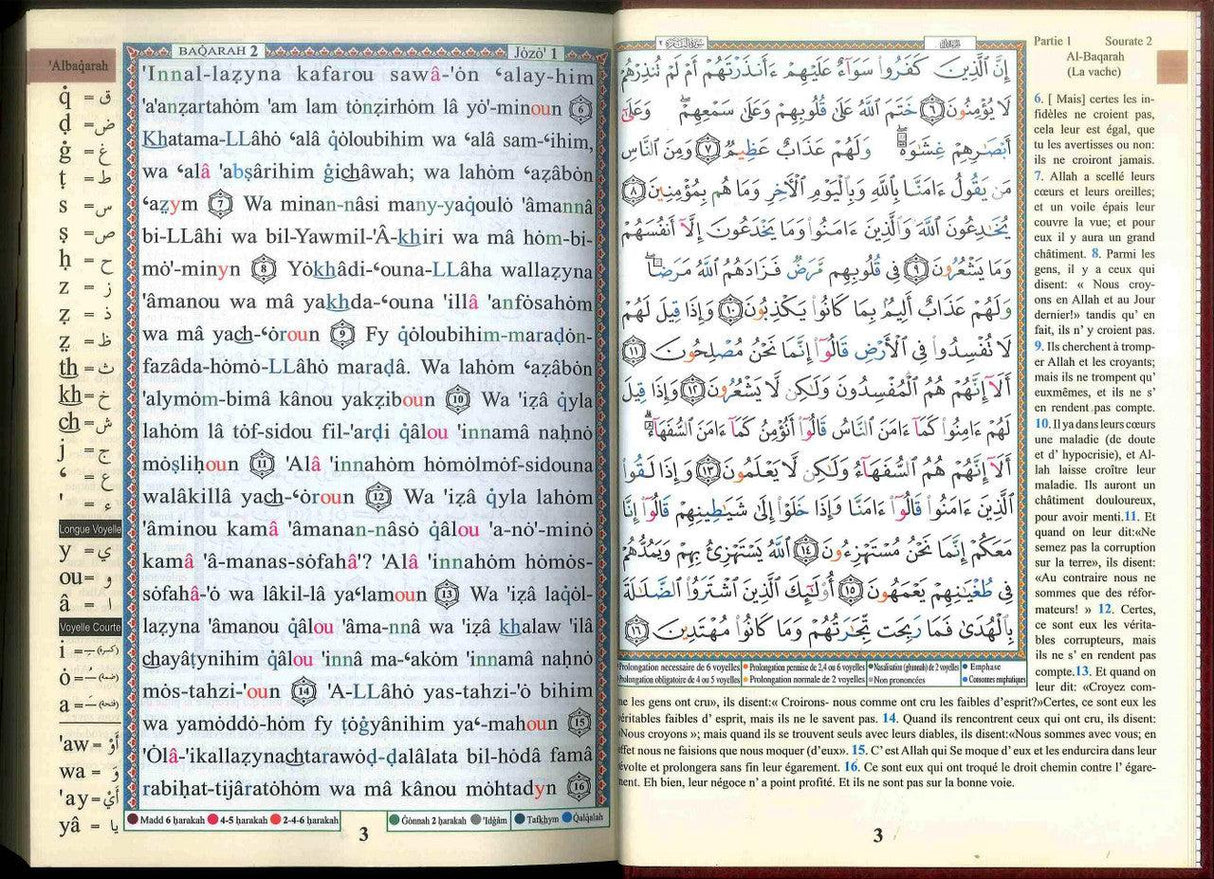 'Albaq̇arah
q̇ = ق
ḍ = ض
ġ = غ
ṭ = ط
s = س
ṣ = ص
ḥ = ح
z = ز
ẓ = ذ
z̤ = ظ
th = ث
kh = خ
ch = ش
j = ج
ʻ = ع
' = ء
Longue Voyelle
y = ي
ou = و
â = ا
Voyelle Courte
i = (كسرة)
ȯ = (ضمة)
a = (فتحة)
'aw = أَوْ
wa = وَ
'ay = أَيْ
yâ = يا
BAQ̇ARAH 2
Jȯzȯ' 1
'Innal-laẓyna kafarou sawâ-'ȯn ʻalay-him
'a'anẓartahȯm 'am lam tȯnẓirhȯm lâ yȯ'-minoun 6
Khatama-LLâhȯ ʻalâ q̇ȯloubihim wa ʻalâ sam-ʻihim,
wa ʻalâ 'abṣârihim ġichâwah; wa lahȯm ʻaẓâbȯn
ʻaz̤ym 7 Wa minan-nâsi many-yaq̇oulȯ 'âmannâ
bi-LLâhi wa bil-Yawmil-'Â-khiri wa mâ hȯm-bi-
mȯ'-minyn 8 Yȯkhâdi-ʻouna-LLâha wallaẓyna
'âmanou wa mâ yakhda-ʻouna 'illâ 'anfȯsahȯm
wa mâ yach-ʻȯroun 9 Fy q̇ȯloubihim-maraḍȯn-
fazâda-hȯmȯ-LLâhȯ maraḍâ. Wa lahȯm ʻaẓâbȯn
'alymȯm-bimâ kânou yakẓiboun 10 Wa 'iẓâ q̇yla
lahȯm lâ tȯf-sidou fil-'arḍi q̇âlou 'innamâ naḥnȯ
mȯṣliḥoun 11 'Alâ 'innahȯm hȯmȯlmȯf-sidouna
walâkillâ yach-ʻȯroun 12 Wa 'iẓâ q̇yla lahȯm
'âminou kamâ 'âmanan-nâsȯ q̇âlou 'a-nȯ'-minȯ
kamâ 'â-manas-sȯfahâ'? 'Alâ 'innahȯm hȯmȯs-
sȯfahâ-'ȯ wa lâkil-lâ yaʻlamoun 13 Wa 'iẓâ laq̇ȯl-
laẓyna 'âmanou q̇âlou 'âma-nnâ wa 'iẓâ khalaw 'ilâ
chayâṭynihim q̇âlou 'innâ ma-ʻakȯm 'innamâ naḥnȯ
mȯs-tahzi-'oun 14 'A-LLâhȯ yas-tahzi-'ȯ bihim
wa yamȯddȯ-hȯm fy ṭȯġyânihim yaʻ-mahoun 15
'Ȯlâ-'ikallaẓynachtarawȯḍ-ḍalâlata bil-hȯdâ famâ
rabiḥat-tijâratȯhȯm wa mâ kânou mȯhtadyn 16
Madd 6 ḥarakah 4-5 ḥarakah 2-4-6 ḥarakah
Ġȯnnah 2 ḥarakah 'Idġâm Tafkhym Q̇alq̇alah
3
إِنَّ ٱلَّذِينَ كَفَرُوا۟ سَوَآءٌ عَلَيْهِمْ ءَأَنذَرْتَهُمْ أَمْ لَمْ تُنذِرْهُمْ
لَا يُؤْمِنُونَ ٦ خَتَمَ ٱللَّهُ عَلَىٰ قُلُوبِهِمْ وَعَلَىٰ سَمْعِهِمْ ۖ وَعَلَىٰٓ
أَبْصَٰرِهِمْ غِشَٰوَةٌ ۖ وَلَهُمْ عَذَابٌ عَظِيمٌ ٧ وَمِنَ ٱلنَّاسِ
مَن يَقُولُ ءَامَنَّا بِٱللَّهِ وَبِٱلْيَوْمِ ٱلْءَاخِرِ وَمَا هُم بِمُؤْمِنِينَ ٨
يُخَٰدِعُونَ ٱللَّهَ وَٱلَّذِينَ ءَامَنُوا۟ وَمَا يَخْدَعُونَ إِلَّآ أَنفُسَهُمْ
وَمَا يَشْعُرُونَ ٩ فِى قُلُوبِهِم مَّرَضٌ فَزَادَهُمُ ٱللَّهُ مَرَضًا ۖ
وَلَهُمْ عَذَابٌ أَلِيمٌۢ بِمَا كَانُوا۟ يَكْذِبُونَ ١٠ وَإِذَا قِيلَ لَهُمْ
لَا تُفْسِدُوا۟ فِى ٱلْأَرْضِ قَالُوٓا۟ إِنَّمَا نَحْنُ مُصْلِحُونَ ١١
أَلَآ إِنَّهُمْ هُمُ ٱلْمُفْسِدُونَ وَلَٰكِن لَّا يَشْعُرُونَ ١٢ وَإِذَا قِيلَ
لَهُمْ ءَامِنُوا۟ كَمَآ ءَامَنَ ٱلنَّاسُ قَالُوٓا۟ أَنُؤْمِنُ كَمَآ ءَامَنَ ٱلسُّفَهَآءُ ۗ
أَلَآ إِنَّهُمْ هُمُ ٱلسُّفَهَآءُ وَلَٰكِن لَّا يَعْلَمُونَ ١٣ وَإِذَا لَقُوا۟
ٱلَّذِينَ ءَامَنُوا۟ قَالُوٓا۟ ءَامَنَّا وَإِذَا خَلَوْا۟ إِلَىٰ شَيَٰطِينِهِمْ قَالُوٓا۟ إِنَّا
مَعَكُمْ إِنَّمَا نَحْنُ مُسْتَهْزِءُونَ ١٤ ٱللَّهُ يَسْتَهْزِئُ بِهِمْ وَيَمُدُّهُمْ
فِى طُغْيَٰنِهِمْ يَعْمَهُونَ ١٥ أُو۟لَٰٓئِكَ ٱلَّذِينَ ٱشْتَرَوُا۟ ٱلضَّلَٰلَةَ
بِٱلْهُدَىٰ فَمَا رَبِحَت تِّجَٰرَتُهُمْ وَمَا كَانُوا۟ مُهْتَدِينَ ١٦
Prolongation necessaire de 6 voyelles Prolongation permise de 2,4 ou 6 voyelles Nasalisation (ghunnah) de 2 voyelles Emphase
Prolongation obligatoire de 4 ou 5 voyelles Prolongation normale de 2 voyelles Non prononcées Consonnes emphatiques
Partie 1 Sourate 2
Al-Baqarah
(La vache)
6. [ Mais] certes les in-
fidèles ne croient pas,
cela leur est égal, que
tu les avertisses ou non:
ils ne croiront jamais.
7. Allah a scellé leurs
cœurs et leurs oreilles;
et un voile épais leur
couvre la vue; et pour
eux il y aura un grand
châtiment. 8. Parmi les
gens, il y a ceux qui
disent: « Nous croy-
ons en Allah et au Jour
dernier!» tandis qu' en
fait, ils n' y croient pas.
9. Ils cherchent à tromp-
er Allah et les croyants;
mais ils ne trompent qu'
euxmêmes, et ils ne s'
en rendent pas compte.
10. Il ya dans leurs cœurs
une maladie (de doute
et d' hypocrisie), et Al-
lah laisse croître leur
maladie. Ils auront un
châtiment douloureux,
pour avoir menti.11. Et
quand on leur dit:«Ne
semez pas la corruption
sur la terre», ils disent:
«Au contraire nous ne
sommes que des réfor-
mateurs! » 12. Certes,
ce sont eux les vérita-
bles corrupteurs, mais
ils ne s' en rendent pas
compte.13. Et quand on
leur dit: «Croyez com-
me les gens ont cru», ils disent:« Croirons- nous comme ont cru les faibles d'esprit?»Certes, ce sont eux les
véritables faibles d' esprit, mais ils ne le savent pas. 14. Quand ils rencontrent ceux qui ont cru, ils disent:
«Nous croyons »; mais quand ils se trouvent seuls avec leurs diables, ils disent:«Nous sommes avec vous; en
effet nous ne faisions que nous moquer (d'eux». 15. C' est Allah qui Se moque d' eux et les endurcira dans leur
révolte et prolongera sans fin leur égarement. 16. Ce sont eux qui ont troqué le droit chemin contre l' égare-
ment. Eh bien, leur négoce n' a point profité. Et ils ne sont pas sur la bonne voie.
3